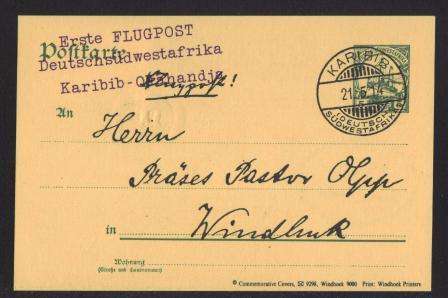 Erste FLUGPOST
Deutschsüdwestafrika
Karibib-O
Postkarte
Flugpost!
KARIBIB
21.5.14
DEUTSCH-
SÜDWESTAFRIKA
An
Herrn
Präses Pastor Olpp
in Windhuk
Wohnung
(Straße und Hausnummer)
© Commemorative Covers, SC 9298, Windhoek 9000 Print: Windhoek Printers